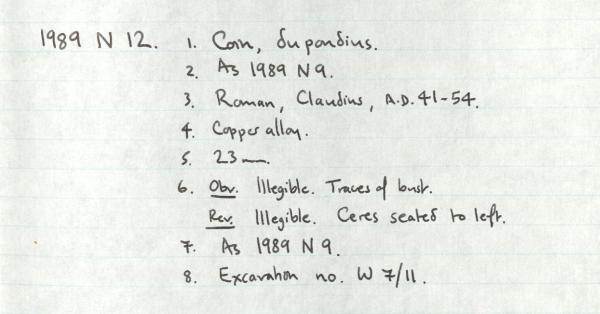 1989 N 12. 1. Coin, dupondius.
2. As 1989 N 9.
3. Roman, Claudius, A.D. 41-54.
4. Copper alloy.
5. 23mm.
6. Obv. Illegible. Traces of bust.
Rev. Illegible. Ceres seated to left.
7. As 1989 N 9.
8. Excavation no. W 7/11.